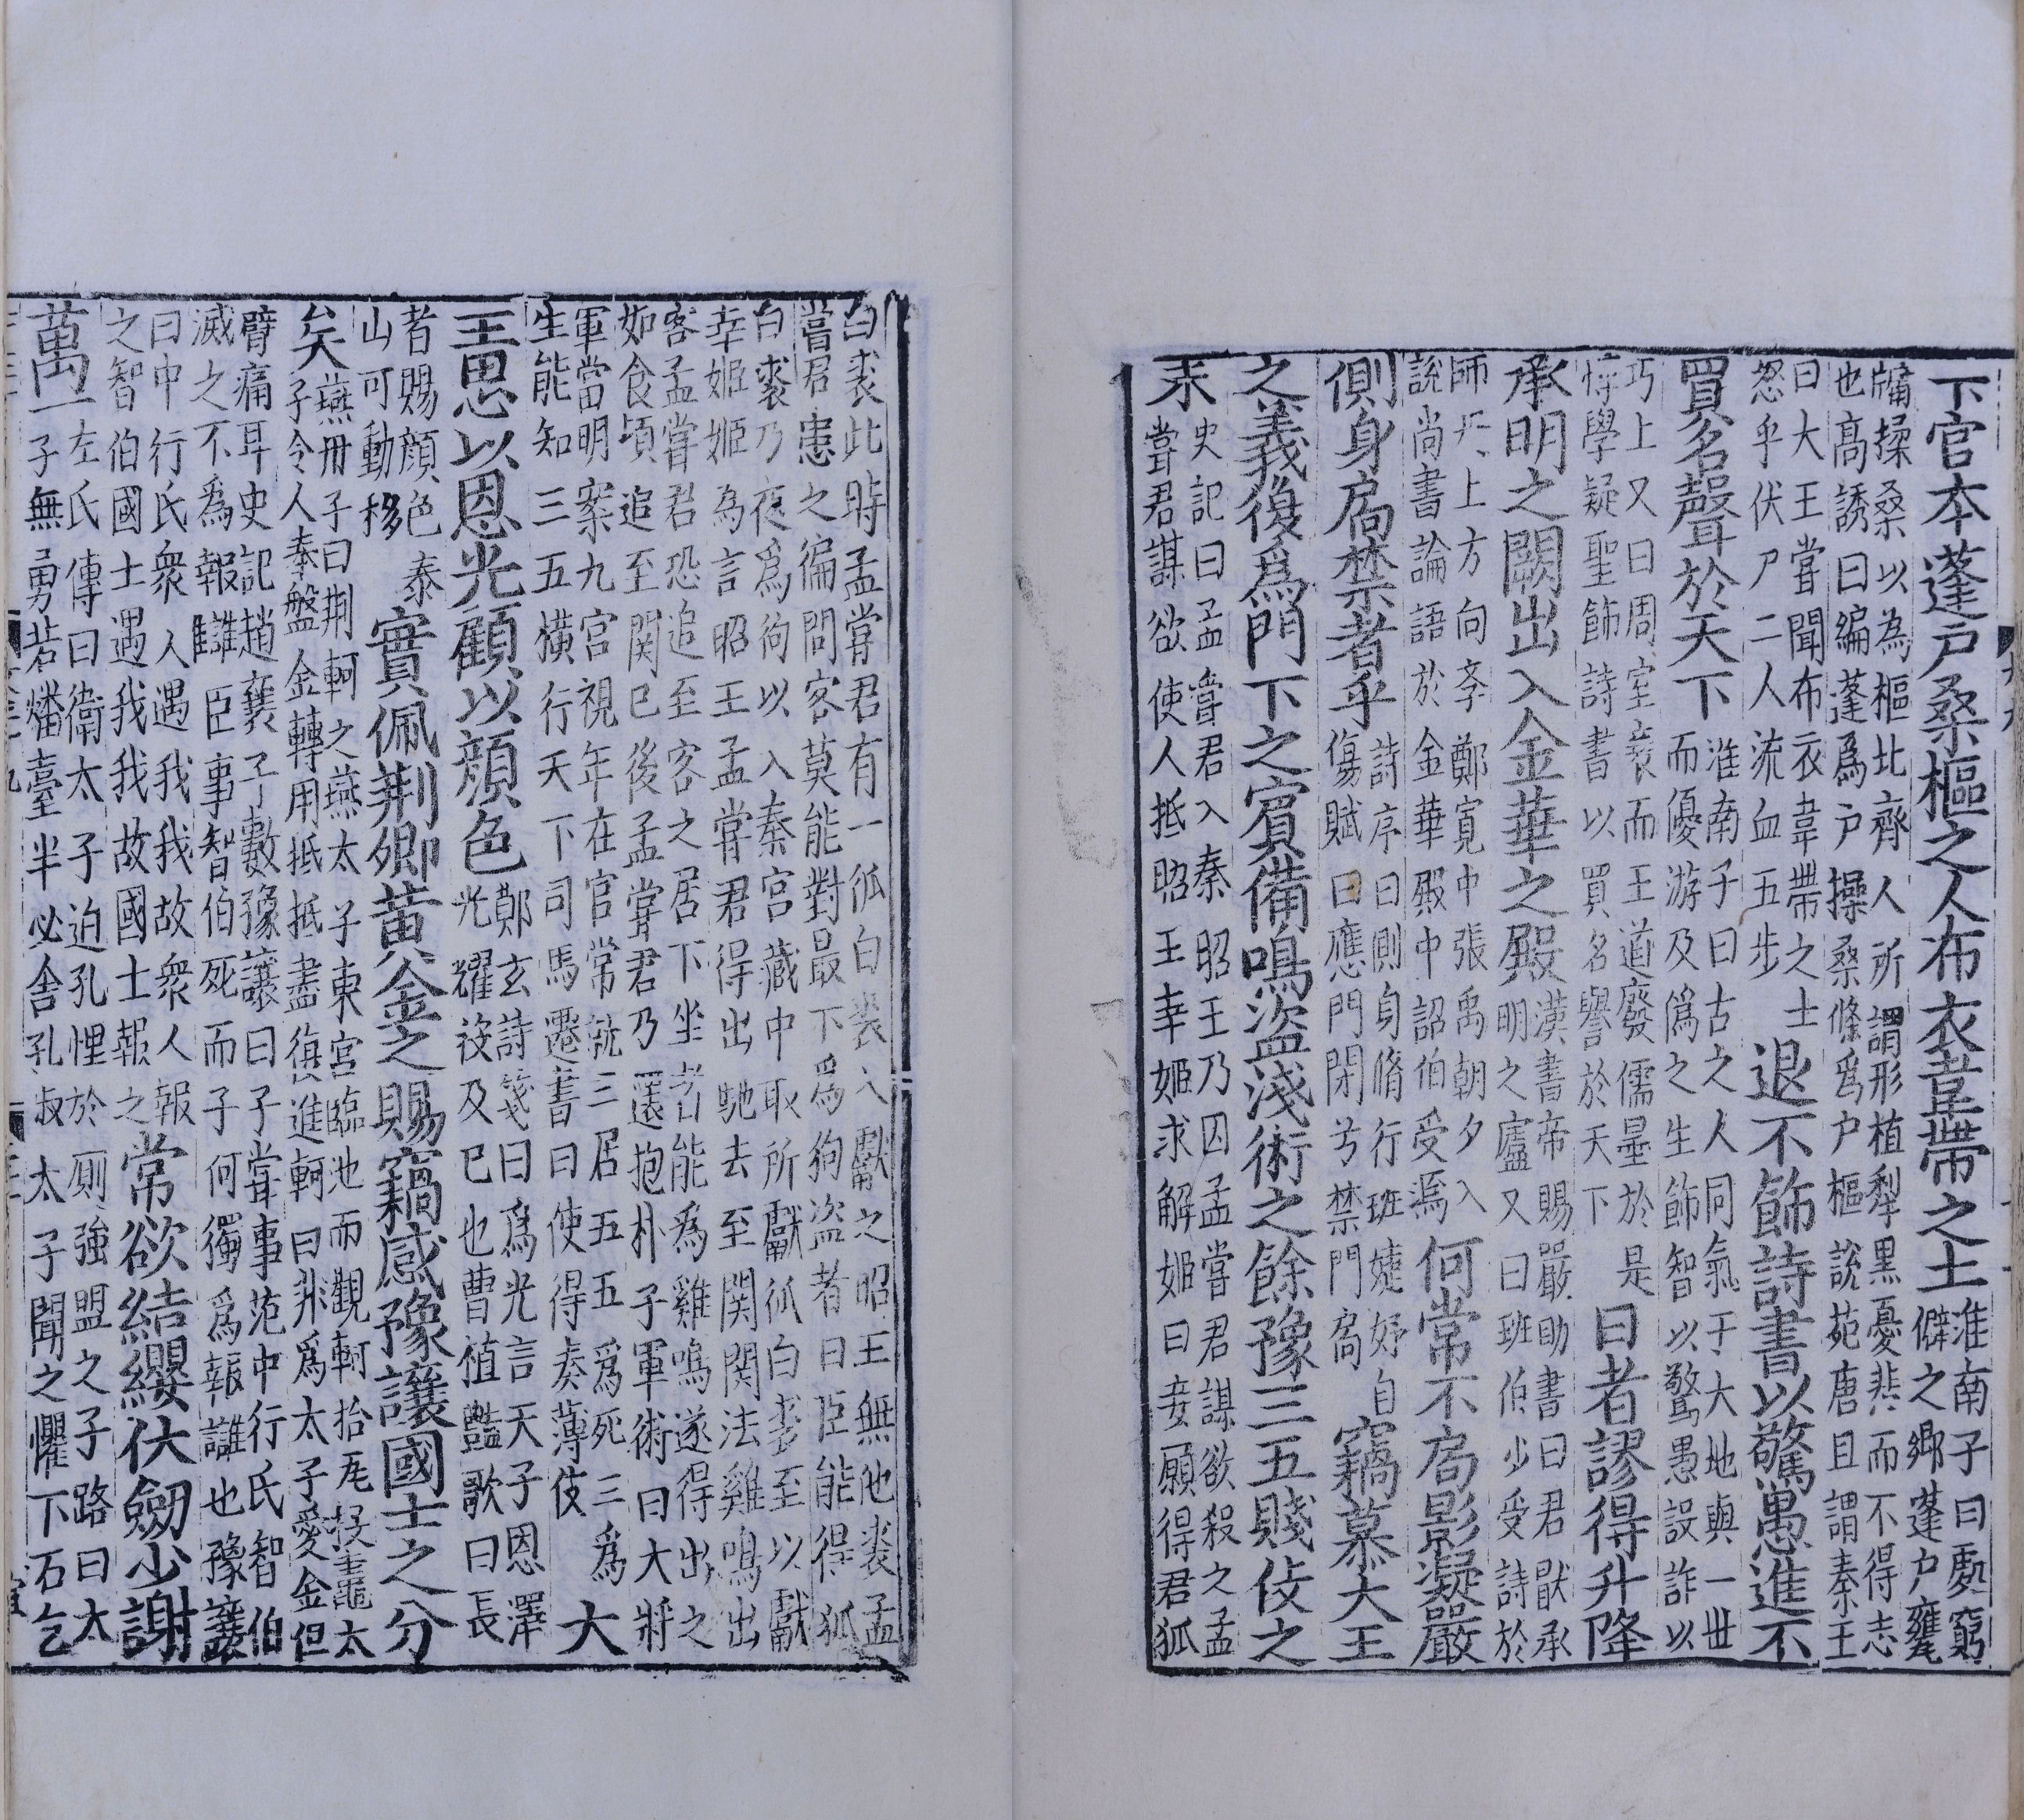 下官本蓬户桑樞之人布衣韋帶之士淮南子曰處窮
僻之鄉蓬户甕
牖揉桑以為樞北齊人所謂形植犁黑憂悲而不得志
也高誘曰編蓬爲户操桑條爲户樞說苑唐且謂秦王
曰大王嘗聞布衣韋帶之士
怒乎伏尸二人流血五步退不飾詩書以驚愚進不
買名聲於天下淮南子曰古之人同氣于大地與一世
而優游及僞之生飾智以驚愚設詐以
巧上又曰周室衰而王道廢儒墨於是
悖學疑聖飾詩書以買名譽於天下曰者謬得升降
承明之闕出入金華之殿漢書帝賜嚴助書曰君猒承
明之廬又曰班伯少受詩於
師丹上方向李鄭寬中張禹朝夕入
說尚書論語於金華殿中詔伯受焉何常不局影凝嚴
側身扃禁者乎詩序曰側身脩行班婕妤自
傷賦曰應門閉兮禁門扃竊慕大王
之義復爲門下之賓備鳴盜淺術之餘豫三五賤伎之
末史記曰孟嘗君入秦昭王乃囚孟嘗君謀欲殺之孟
嘗君謀欲使人抵昭王幸姬求解姬曰妾願得君狐
白裘此時孟嘗君有一狐白裘入獻之昭王無他裘孟
嘗君患之徧問客莫能對最下爲狗盜者曰臣能得狐
白裘乃夜爲狗以入秦宮藏中取所獻狐白裘至以獻
幸姬姬為言昭王孟嘗君得出馳去至関関法雞鳴出
客孟嘗君恐追至客之居下坐者能爲雞鳴遂得出之
如食頃追至関已後孟嘗君乃還抱朴子軍術曰大將
軍當明案九宮視年在官常就三居五五爲死三爲
生能知三五橫行天下司馬遷書曰使得奏薄伎大
王思以恩光顧以顔色鄭玄詩箋曰爲光言天子恩澤
光耀被及已也曹植豔歌曰長
者賜顔色泰
山可動移實佩荆卿黄金之賜竊感豫讓國士之分
矣燕丹子曰荆軻之燕太子東宮臨池而觀軻拾瓦投龜太
子令人奉盤金轉用抵抵盡復進軻曰非爲太子愛金但
臂痛耳史記趙襄子數豫讓曰子嘗事范中行氏智伯
滅之不爲報讎臣事智伯死而子何獨爲報讎也豫讓
曰中行氏衆人遇我我故衆人報
之智伯國士遇我我故國士報之常欲結纓伏劒少謝
萬一左氏傳曰衛太子迫孔悝於厠強盟之子路曰太
子無勇若燔臺半必舍孔叔太子聞之懼下石乞